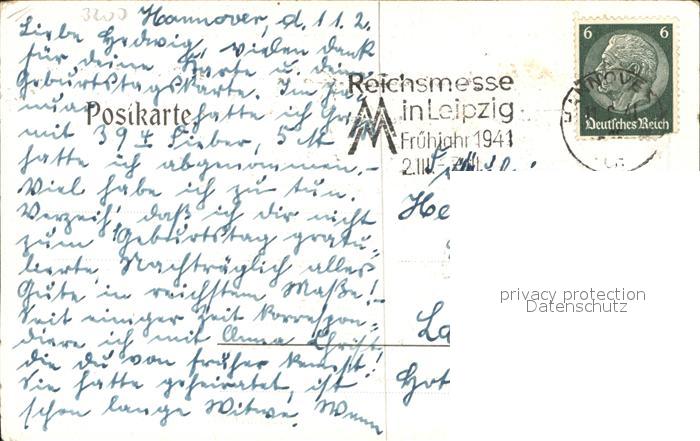 3200
Hannover, d. 11.2.
Liebe Hedwig, vielen Dank
für deine Karte u. dein
Geburtstagskarte. Im Ja
nuar hatte ich Gri
mit 39 4 Fieber, 5 
hatte ich abgenommen.–
Viel habe ich zu tun.
Verzeih, daß ich dir nicht
zum Geburtstag gratu=
lierte. Nachträglich alles
Gute in reichstem Maße!–
Seit einiger Zeit korrespon=
diere ich mit Anna Christ
die du von früher kennst!
Sie hatte geheiratet, ist
schon lange Witwe. Wenn
Postkarte
Reichsmesse
in Leipzig
Frühjahr 1941
2.III.–
6 6
Deutsches Reich
HANNOVER
He
La
Hot
privacy protection
Datenschutz